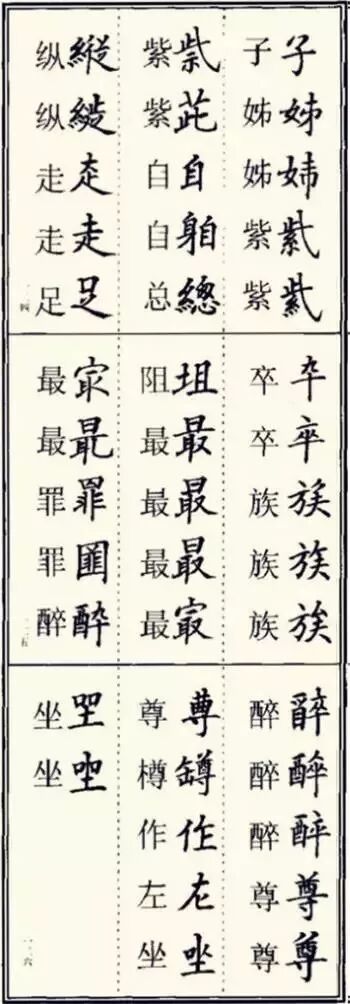 子姊姉紫紫
子姊姊紫紫
紫茈自總
紫紫自自总
縱縦赱走足
纵纵走走足
一二四
卆卒族族族
卒卒族族族
坥最最最㝡
阻最最最最
冣最罪酔
最最罪罪醉
一二五
醉醉酔尊尊
醉醉醉尊尊
尊罇作左坐
尊樽作左坐
坐坐
坐坐
一二六